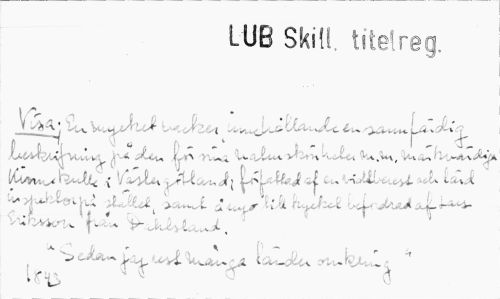 LUB Skill. titelreg.
Visa; En mycket vacker, innehållande en sannfärdig
beskrifning på den för sina naturskönheter m.m. märkvärdiga
Kinnekulle i Västergötland; författad af en vidtberest och lärd
inspektor på stället, samt ånyo till trycket befordrad af Lars
Eriksson från Dahlsland.
"Sedan jag rest många länder omkring"
1843